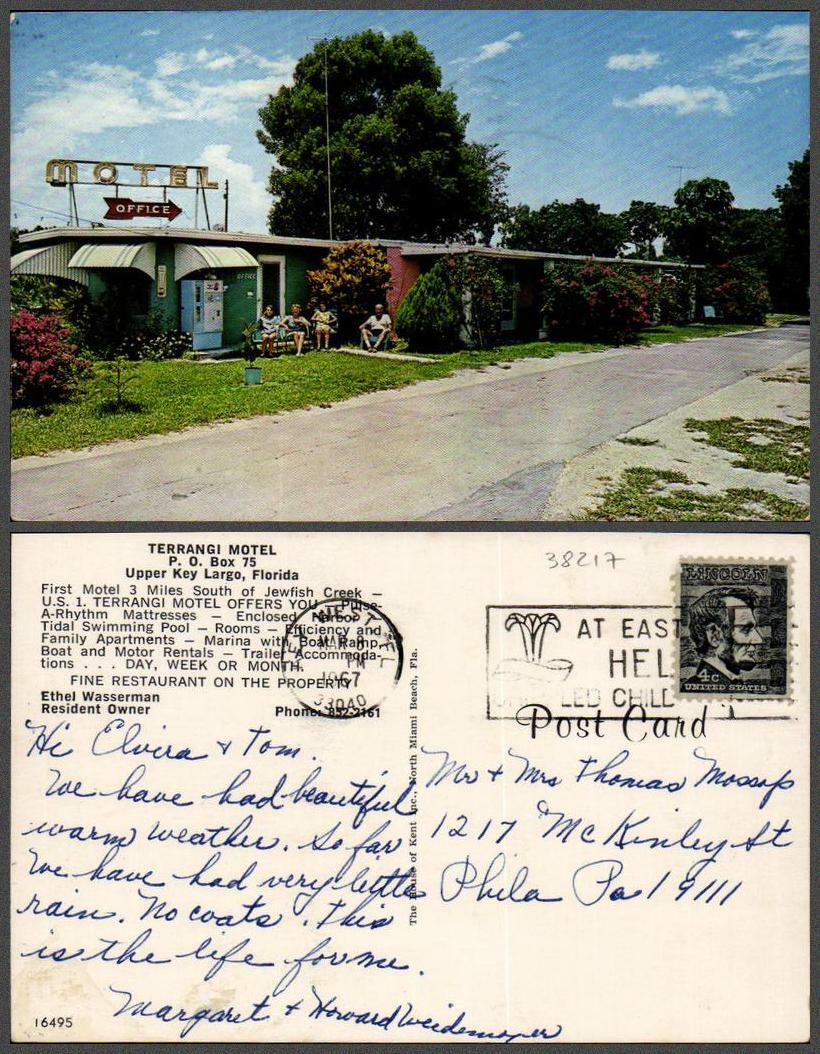 MOTEL
OFFICE
OFFICE
TERRANGI MOTEL
P. O. Box 75
Upper Key Largo, Florida
First Motel 3 Miles South of Jewfish Creek —
U.S. 1. TERRANGI MOTEL OFFERS YOU — Pulse-
A-Rhythm Mattresses — Enclosed Harbor
Tidal Swimming Pool — Rooms — Efficiency and
Family Apartments — Marina with Boat Ramp,
Boat and Motor Rentals — Trailer Accommoda-
tions . . . DAY, WEEK OR MONTH.
FINE RESTAURANT ON THE PROPERTY
Ethel Wasserman
Resident Owner
Phone: 852-2161
Hi Elvira & Tom.
We have had beautiful
warm weather. So far
We have had very little
rain. No coats. This
is the life for me.
Margaret & Howard Weidemoyer
16495
The House of Kent Inc., North Miami Beach, Fla.
38217
MAR 8
PM
1967
33040
AT EAST
HEL
LED CHILD
LINCOLN
4c
UNITED STATES
Post Card
Mr & Mrs Thomas Mossop
1217 McKinley St
Phila Pa 19111